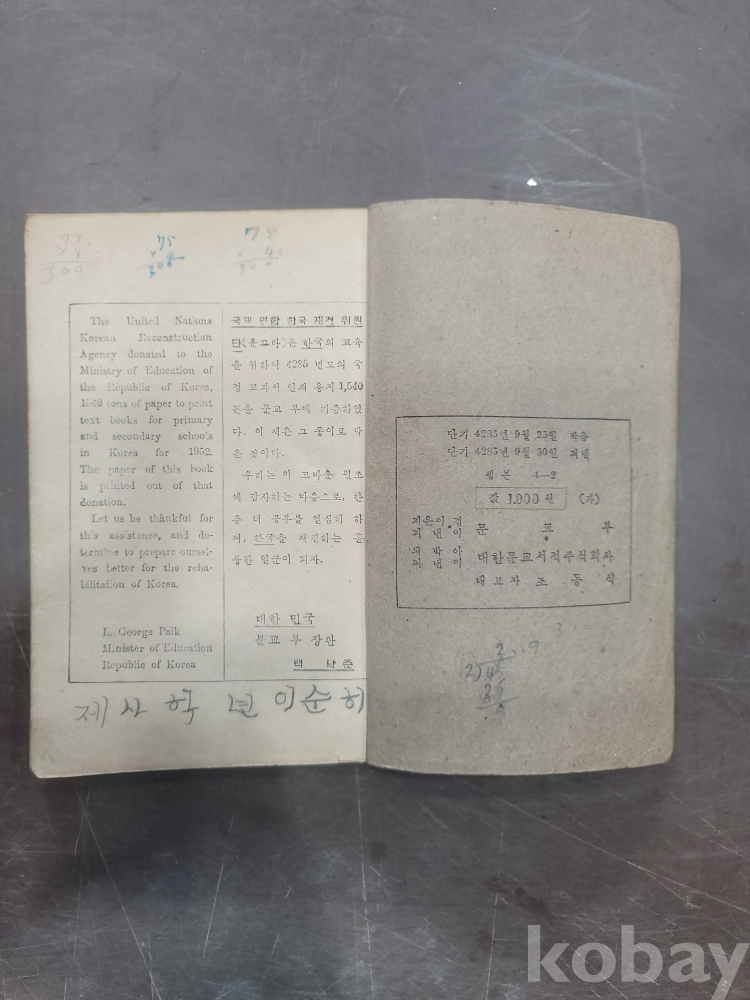 75
300
75
300
75
The United Nations
Korean Reconstruction
Agency donated to the
Ministry of Education of
the Republic of Korea,
1540 tons of paper to print
text books for primary
and secondary schools
in Korea for 1952.
The paper of this book
is printed out of that
donation.
Let us be thankful for
this assistance, and de-
termine to prepare oursel-
ves better for the reha-
bilitation of Korea.
L. George Paik
Minister of Education
Republic of Korea
국제 연합 한국 재건 위원
단(운끄라)은 한국의 교육
을 위하여 4285 년도의 국
정 교과서 인쇄 용지 1,540
톤을 문교 부에 기증하였
다. 이 책은 그 종이로 박
은 것이다.
우리는 이 고마운 원조
에 감사하는 마음으로, 한
층 더 공부를 열심히 하
여, 한국을 재건하는 훌
륭한 일군이 되자.
대한 민국
문교 부 장관
백 낙 준
제 사 학 년 이순히
단기 4285년 9월 25일 박음
단기 4285년 9월 30일 펴냄
4-2
값 1,000 원 (가)
지은이 겸
펴낸이
문 교 부
박아
펴낸이
대한문교서적주식회사
대표자 조 동 식
kobay